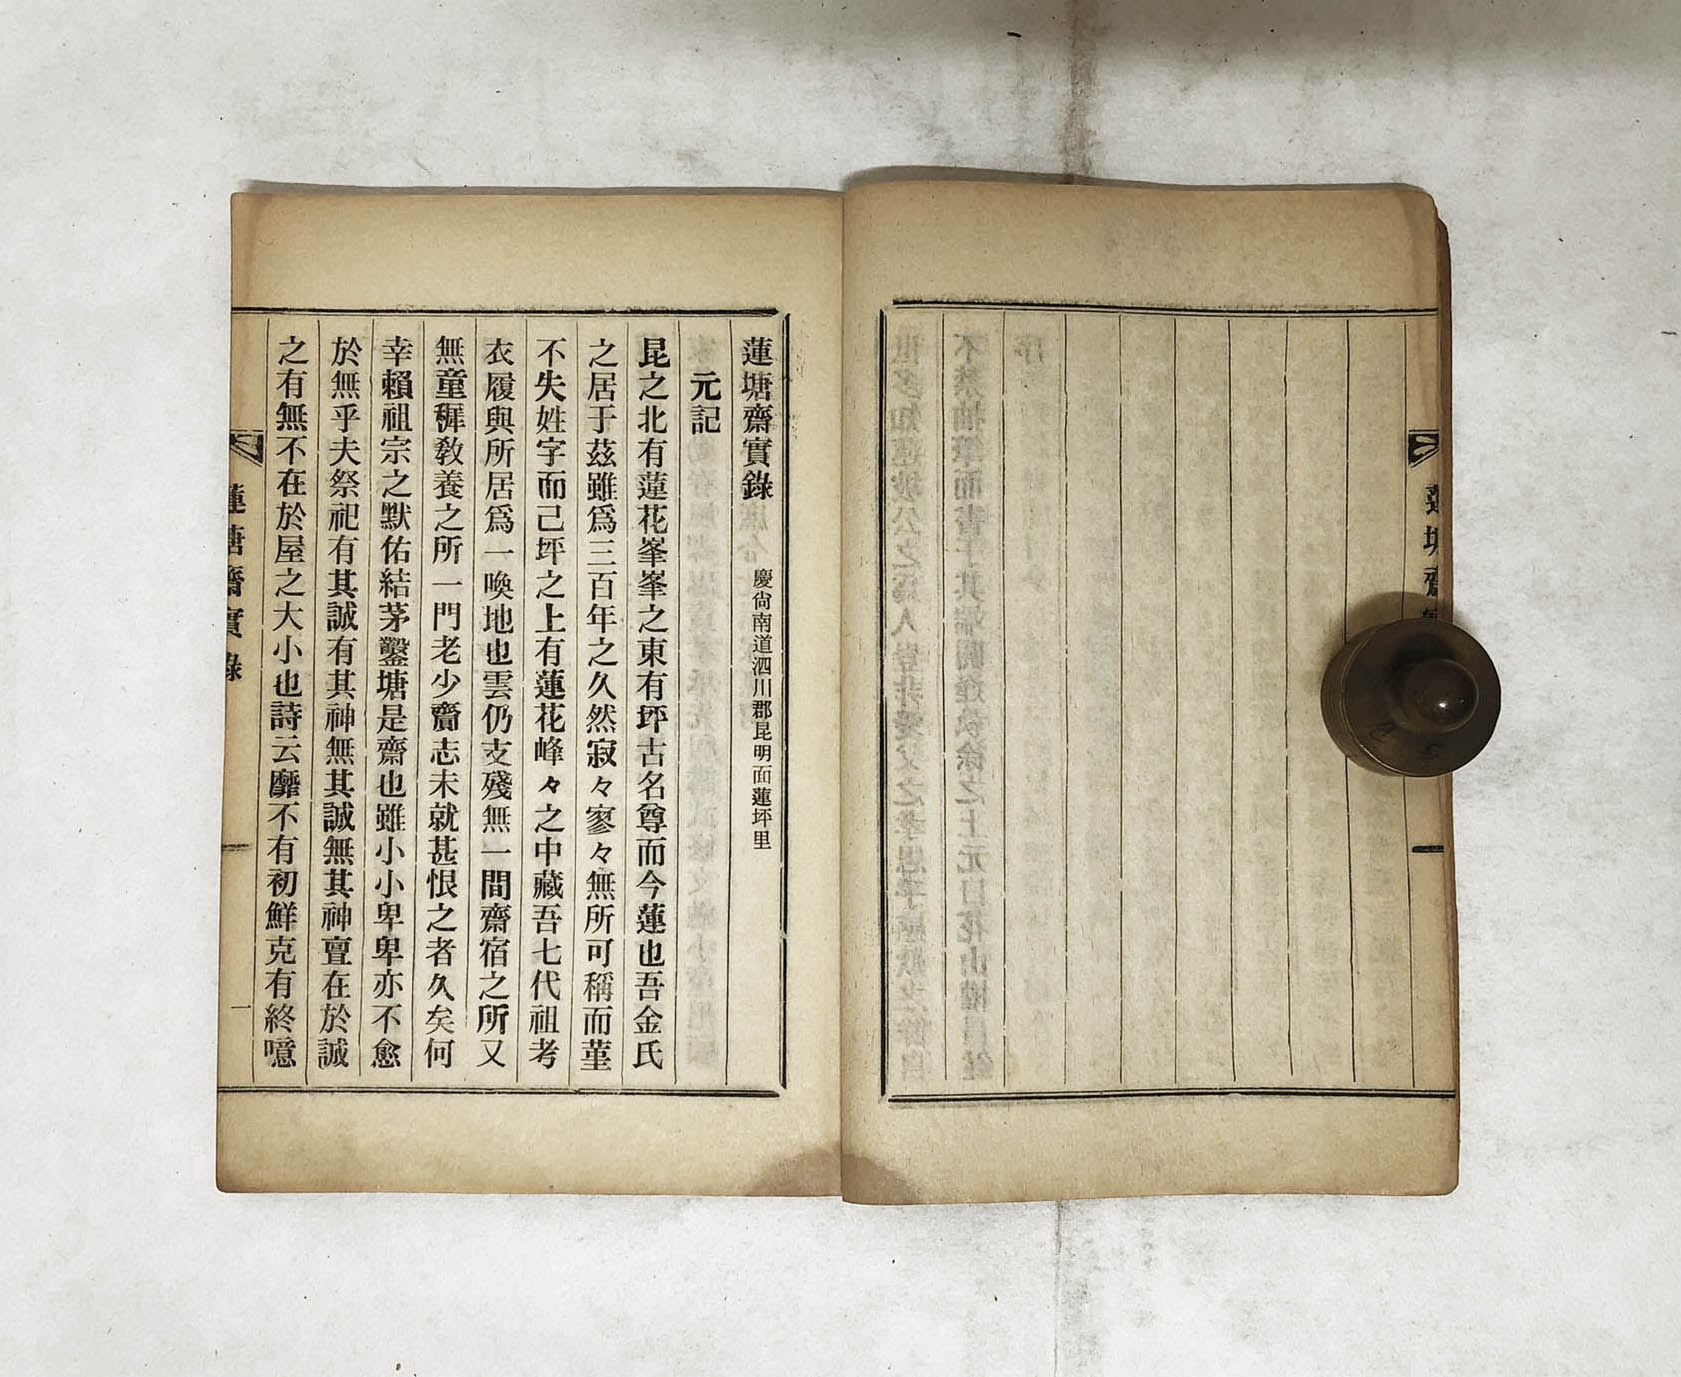 蓮塘齋實錄 慶尙南道泗川郡昆明面蓮坪里
元記
昆之北有蓮花峯峯之東有坪古名尊而今蓮也吾金氏
之居于茲雖爲三百年之久然寂々寥々無所可稱而堇
不失姓字而己坪之上有蓮花峰々之中藏吾七代祖考
衣履與所居爲一喚地也雲仍支殘無一間齋宿之所又
無童穉敎養之所一門老少齎志未就甚恨之者久矣何
幸賴祖宗之默佑結茅鑿塘是齋也雖小小卑卑亦不愈
於無乎夫祭祀有其誠有其神無其誠無其神亶在於誠
之有無不在於屋之大小也詩云靡不有初鮮克有終噫
蓮塘齋實錄 一